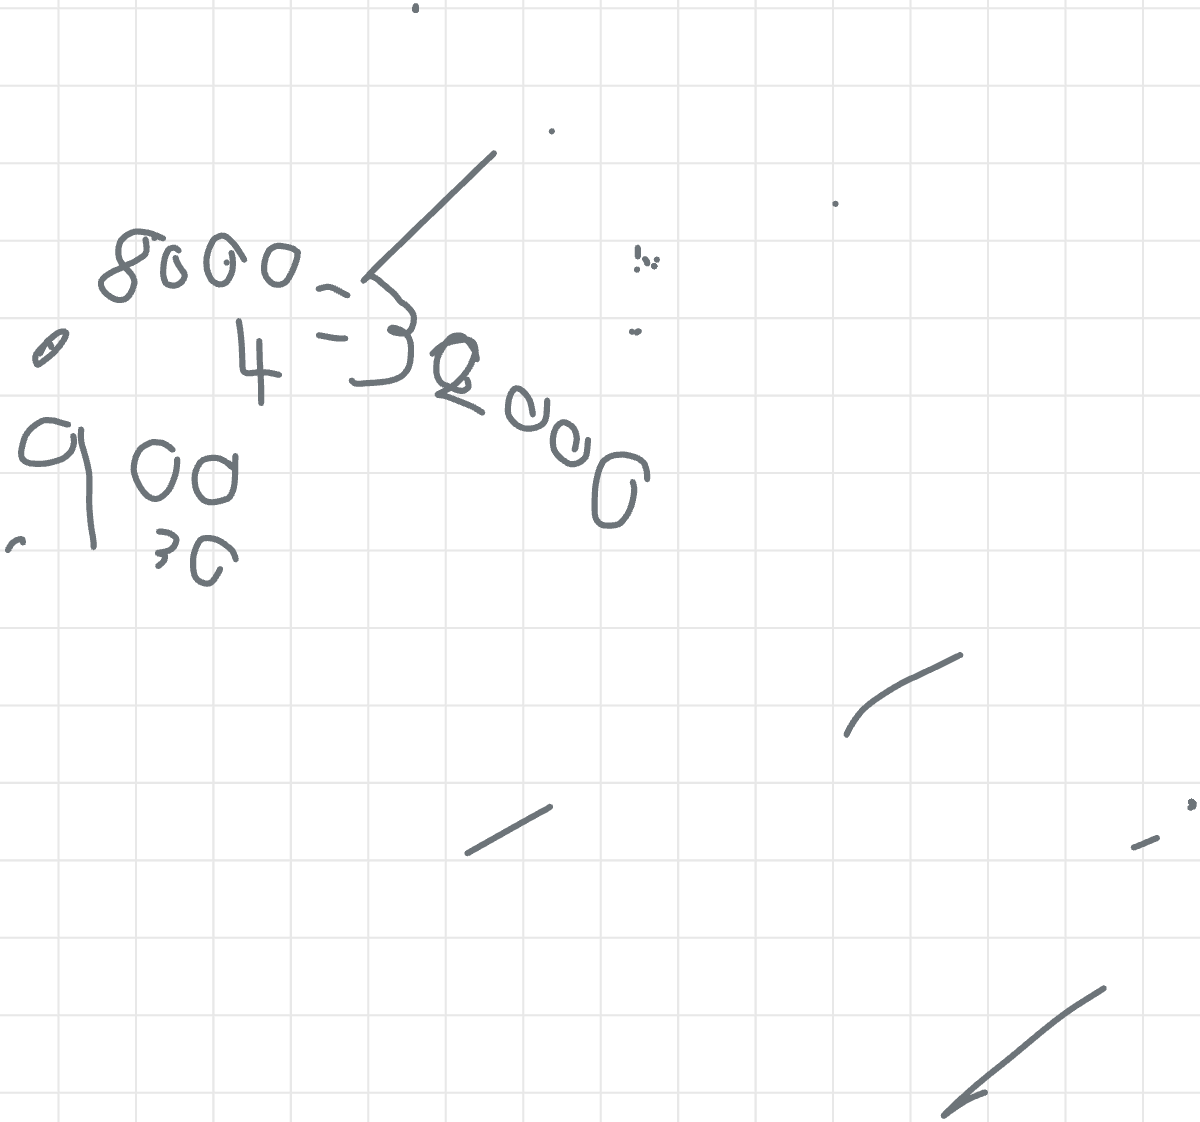 8000
4 = 32000
900
30